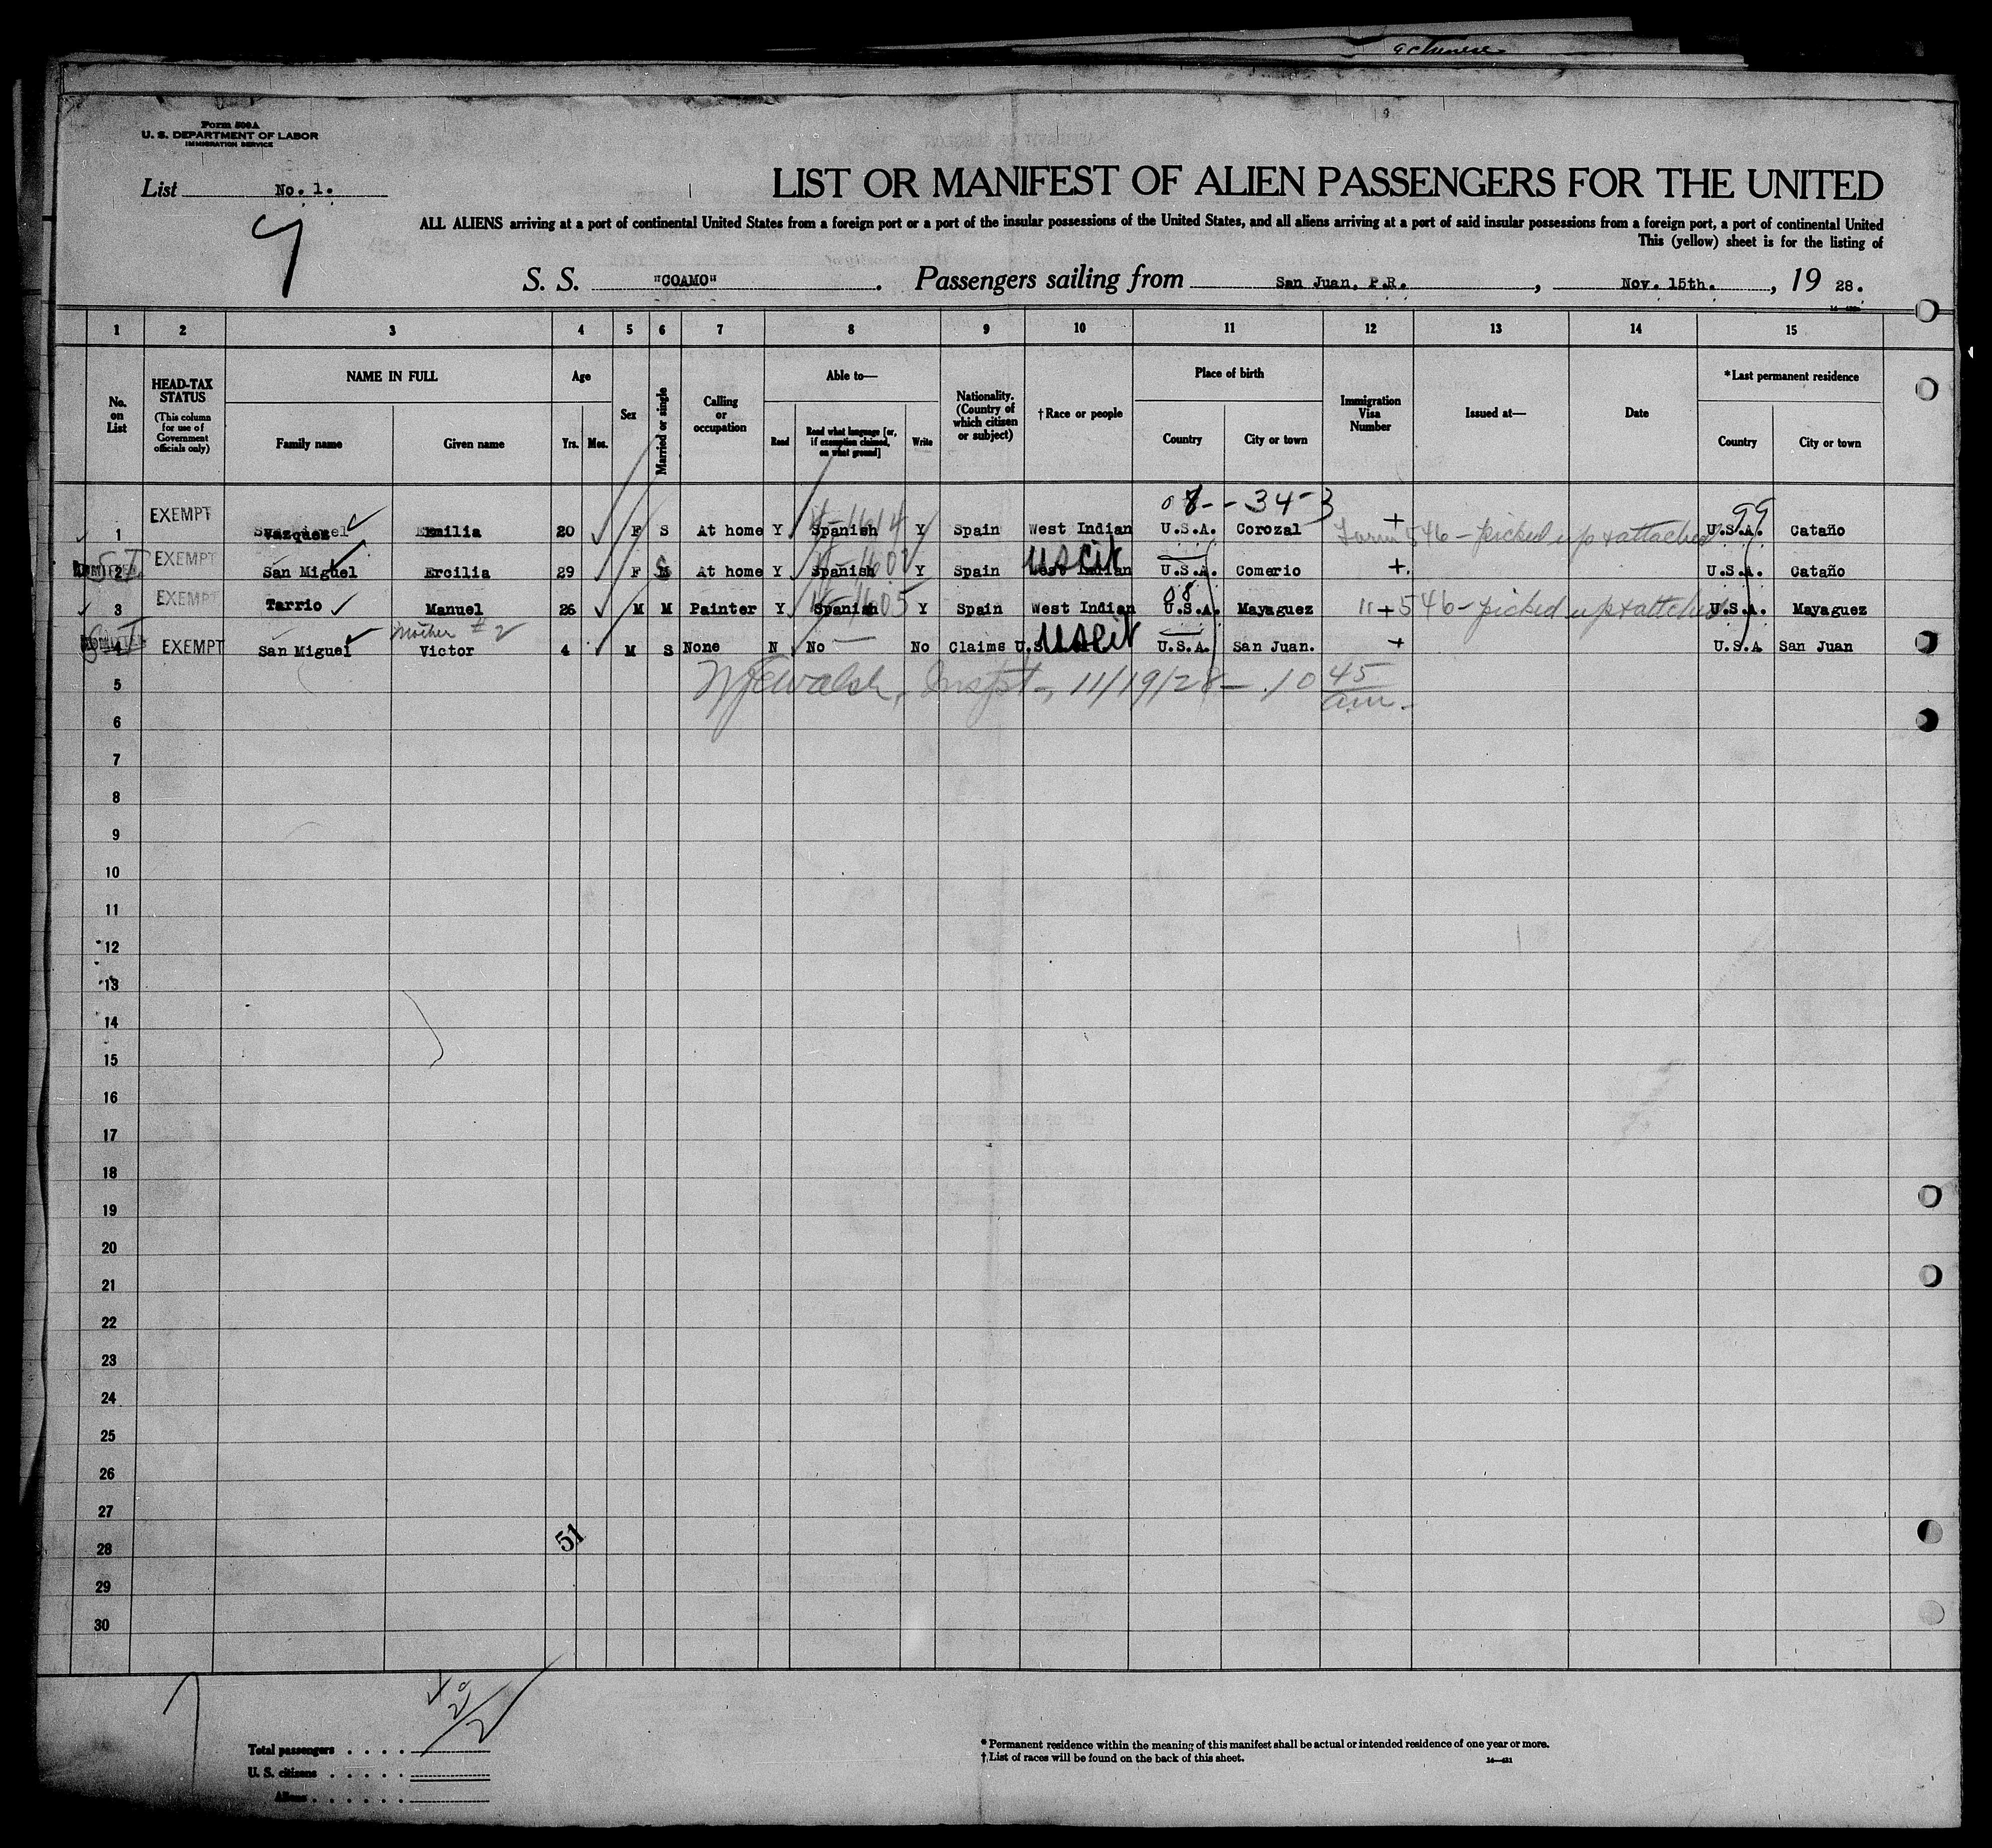 Form 500A
U. S. DEPARTMENT OF LABOR
IMMIGRATION SERVICE
List No. 1.
LIST OR MANIFEST OF ALIEN PASSENGERS FOR THE UNITED
ALL ALIENS arriving at a port of continental United States from a foreign port or a port of the insular possessions of the United States, and all aliens arriving at a port of said insular possessions from a foreign port, a port of continental United
This (yellow) sheet is for the listing of
S. S. "COAMO". Passengers sailing from San Juan, P.R., Nov. 15th., 1928.
1 2 3 4 5 6 7 8 9 10 11 12 13 14 15
No. on List
HEAD-TAX STATUS (This column for use of Government officials only)
NAME IN FULL Family name Given name
Age Yrs. Mos.
Sex
Married or single
Calling or occupation
Able to— Read Read what language [or, if exemption claimed, on what ground] Write
Nationality. (Country of which citizen or subject)
†Race or people
Place of birth Country City or town
Immigration Visa Number
Issued at—
Date
*Last permanent residence Country City or town
08--34-3 99
1 EXEMPT Vazquez Emilia 20 F S At home Y Spanish Y Spain West Indian U.S.A. Corozal + Form 546 - picked up & attached U.S.A. Cataño
2 EXEMPT San Miguel Ercilia 29 F M At home Y Spanish Y Spain West Indian US cit U.S.A. Comerio + U.S.A. Cataño
3 EXEMPT Tarrio Manuel 26 M M Painter Y Spanish Y Spain West Indian 08 U.S.A. Mayaguez " + 546 - picked up & attched U.S.A. Mayaguez
Mother #2
4 EXEMPT San Miguel Victor 4 M S None N No No Claims U.S. US cit U.S.A. San Juan. + U.S.A San Juan
5 Walsh, Inspt-, 11/19/28 - 10 45 am.
6
7
8
9
10
11
12
13
14
15
16
17
18
19
20
21
22
23
24
25
26
27
28
51
29
30
Total passengers
U. S. citizens
Aliens
* Permanent residence within the meaning of this manifest shall be actual or intended residence of one year or more.
† List of races will be found on the back of this sheet.